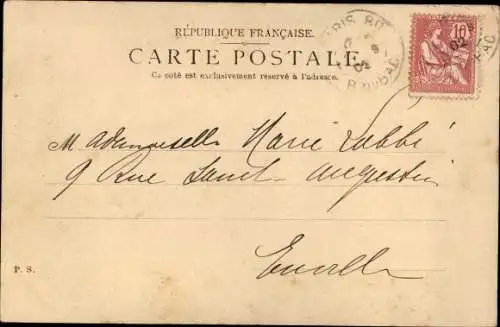 RÉPUBLIQUE FRANÇAISE.
CARTE POSTALE.
Ce côté est exclusivement réservé à l'adresse.
PARIS
R. DU BAC
02
10
02
BAC
Mademoiselle Marie Labbé
9 Rue Saint Augustin
P. S.